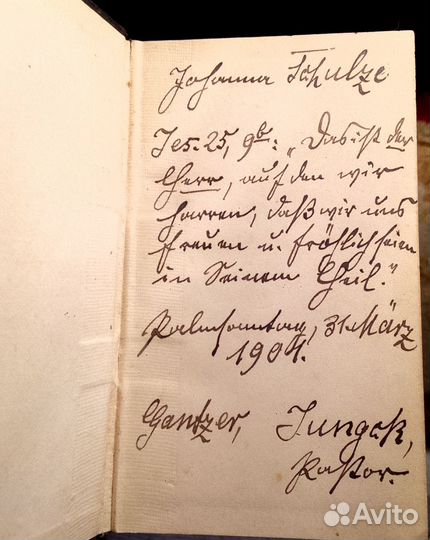 Johanna Schulze
Jes. 25, 9b: „Das ist der
Herr, auf den wir
harren, daß wir uns
freuen u. fröhlich seien
in Seinem Heil."
Palmsonntag, 31. März
1901.
Gantzer, Jungck,
Pastor.
Avito